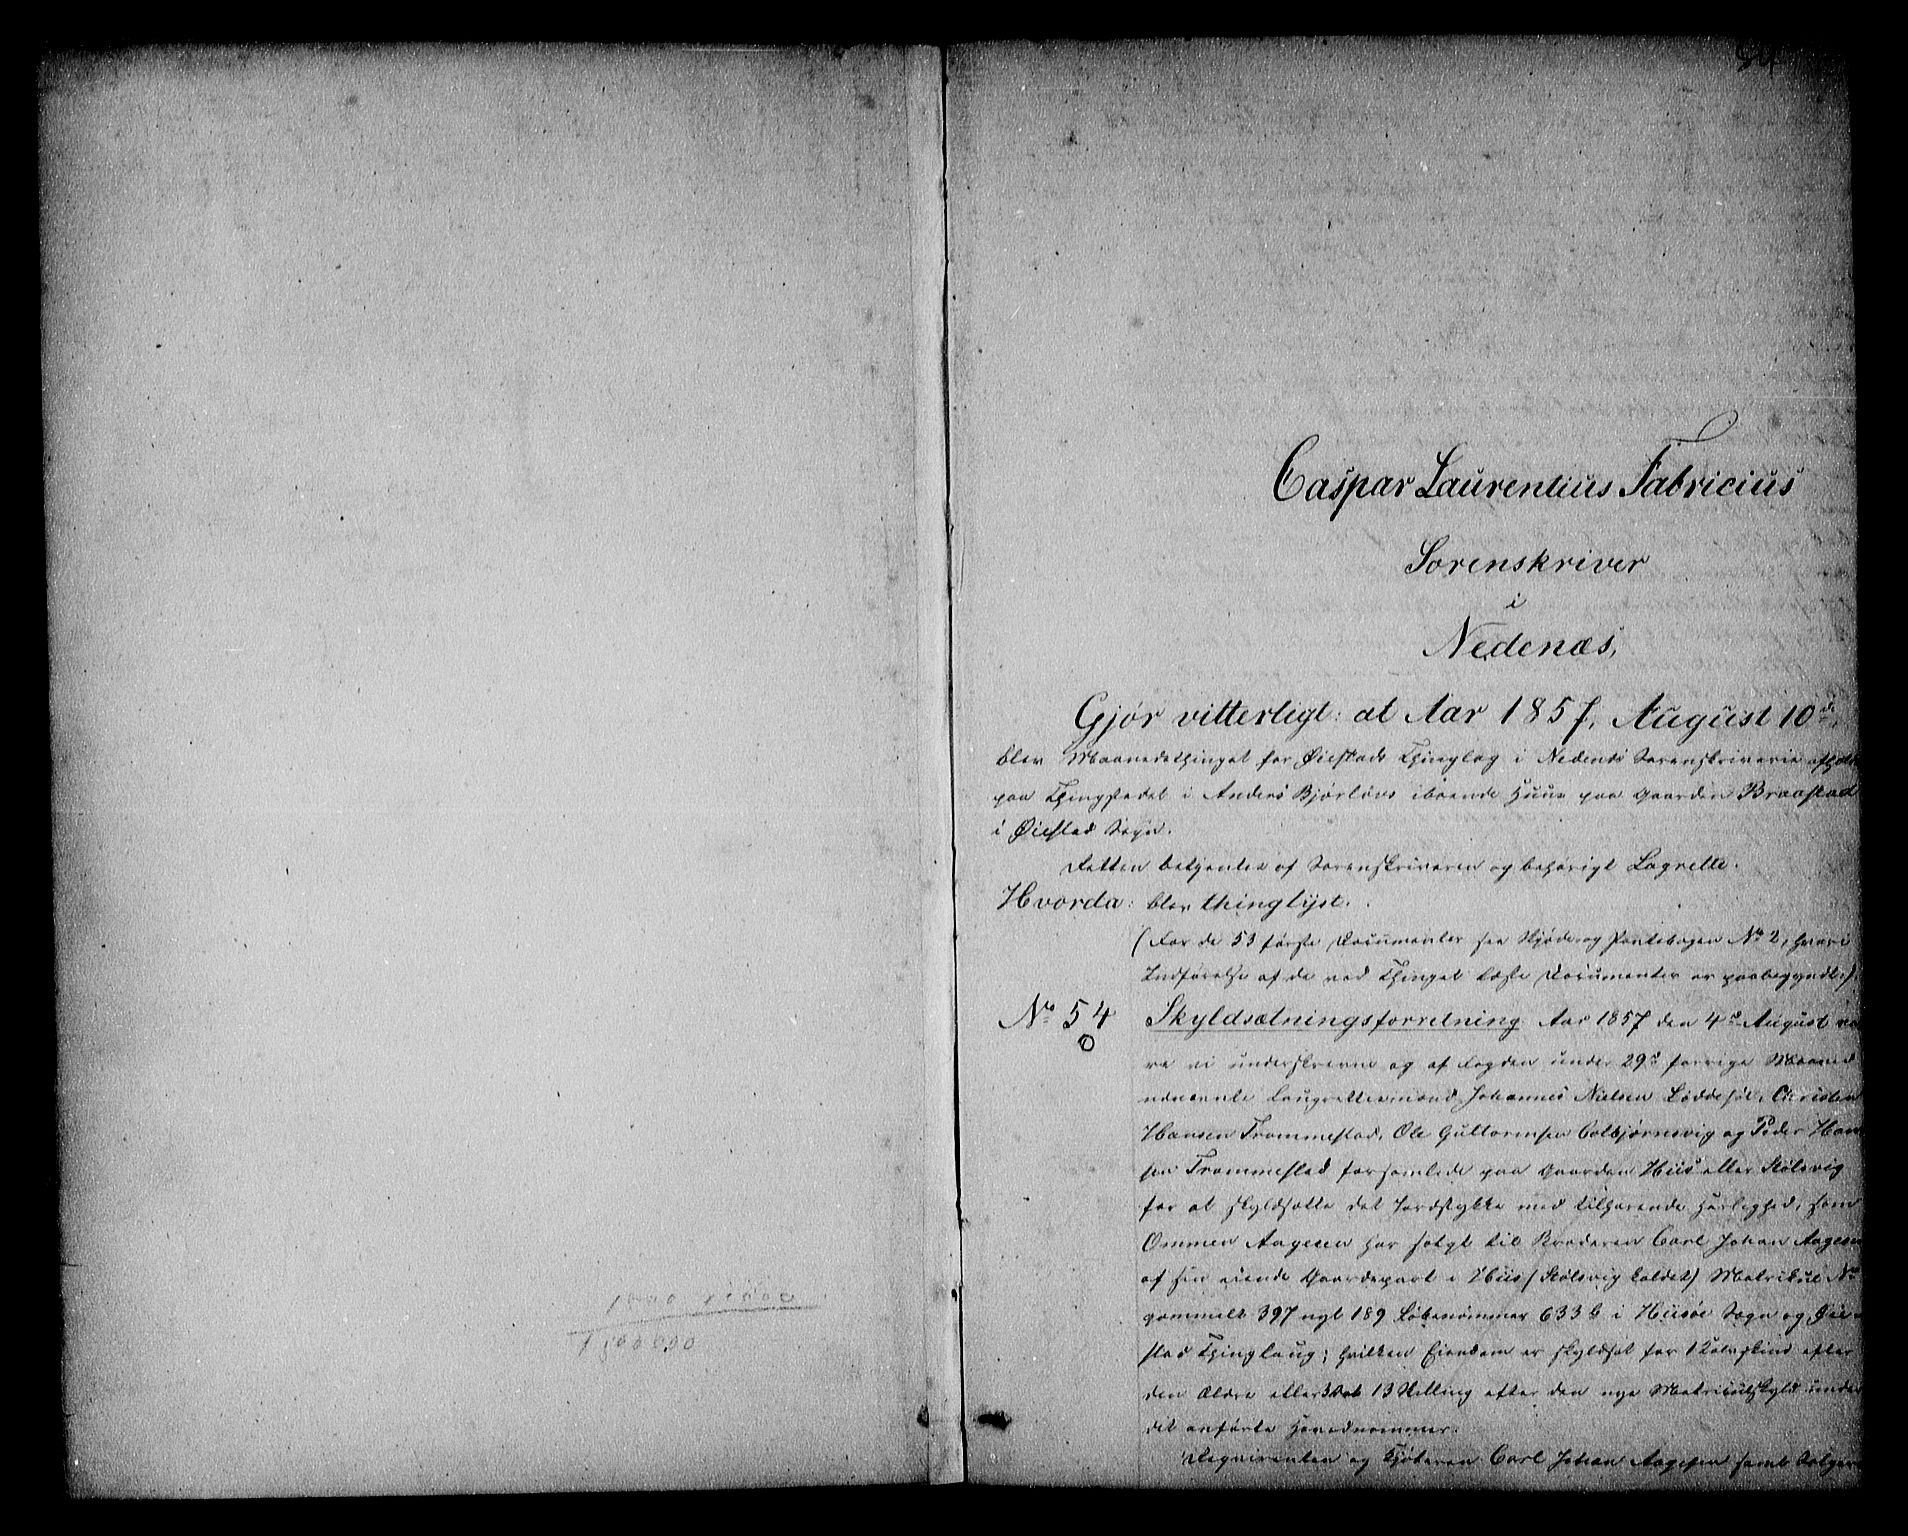 1000 11000
1500000
Caspar Laurentius Fabricius
Sorenskriver
i
Nedenæs,
Gjør vitterligt: at Aar 1857, August 10de,
blev Maanedsthinget for Øiestads Thinglag i Nedenæs Sorenskriverie afholdt
paa Thingstedet i Anders Bjørlovs iboende Huus paa Gaarden Braastad
i Øiestad Sogn.
Retten betjentes af Sorenskriveren og behørigt Lagrette.
Hvorda: blev thinglyst.
(For de 53 første Documenter see Skjøde og Pantebogen No 2, hvori
Indførelse af de ved Thinget læste Documenter er paabegyndt.)
No 54 Skyldsætningsforretning Aar 1857 den 4de August va
0
re vi underskrevne og af Fogden under 29de forrige Maaned
udnævnte Laugrettesmænd Johannes Nielsen Løddesøl, Christen
Hansen Trommestad, Ole Guttormsen Colbjørnsvig og Peder Han
sen Trommestad forsamlede paa Gaarden Hiis eller Stølsvig
for at skyldsætte det Jordstykke med tilhørende Herlighed, som
Ommen Aagesen har solgt til Broderen Carl Johan Aagesen
af sin eiende Gaardepart i Hiis (Stølsvig kaldet) Matrikul No
gammelt 397 nyt 189 Løbenommer 633 b i Hisøe Sogn og Øie-
stad Thinglaug; hvilken Eiendom er skyldsat for 1 Kalvskind efter
den ældre eller 3 Ort 13 Skilling efter den nye Matriculskyld under
det anførte Hovednummer.
Requirenten og Kjøberen Carl Johan Aagesen samt Sælger